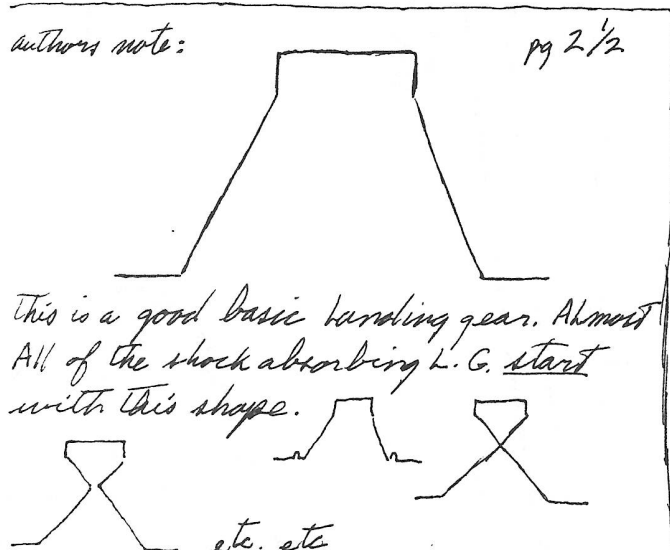 authors note:
pg 2 1/2
This is a good basic Landing gear. Almost
All of the shock absorbing L.G. start
with this shape.
etc. etc